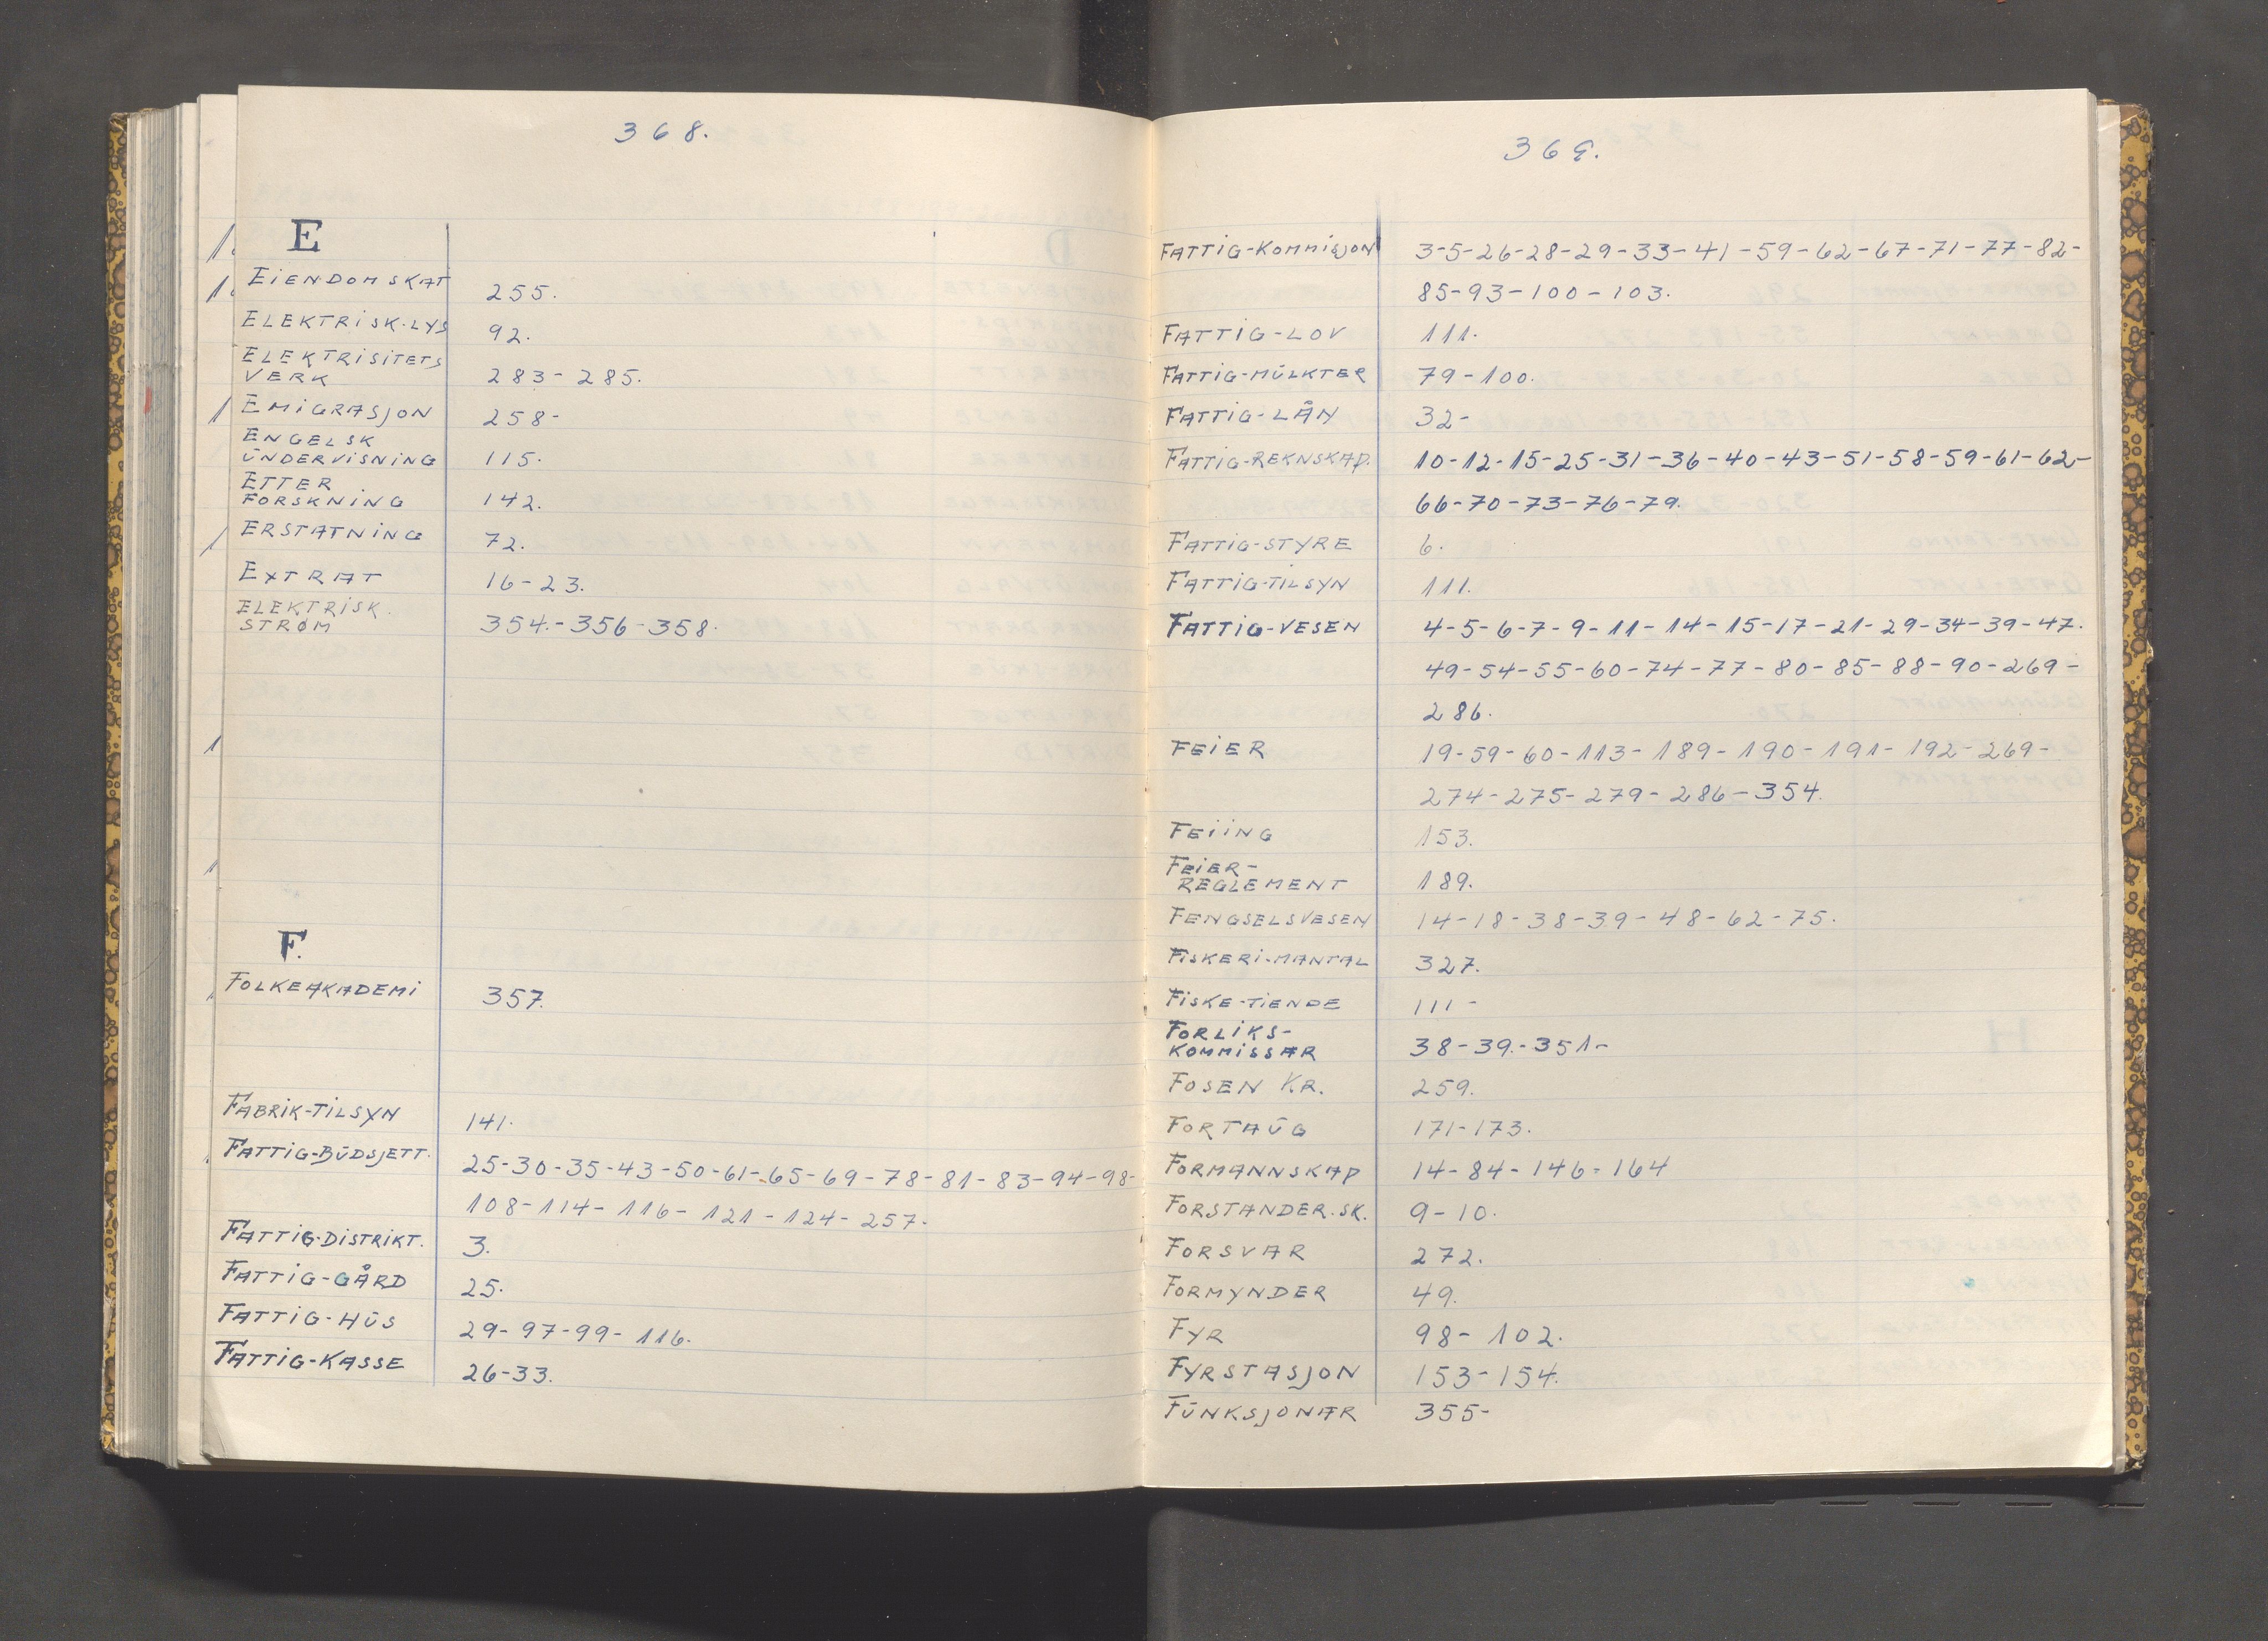 368.
E
EIENDOMSKAT 255.
ELEKTRISK-LYS 92.
ELEKTRISITETS
VERK 283-285.
EMIGRASJON 258-
ENGELSK
ŪNDERVISNING 115.
ETTER
FORSKNING 142.
ERSTATNING 72.
EXTRAT 16-23.
ELEKTRISK.
STRØM 354.-356-358.
F.
FOLKEAKADEMI 357.
FABRIK-TILSYN 141.
FATTIG-BŪDSJETT. 25-30-35-43-50-61-65-69-78-81-83-94-98-
108-114-116-121-124-257-
FATTIG-DISTRIKT. 3.
FATTIG-GÅRD 25.
FATTIG-HŪS 29-97-99-116.
FATTIG-KASSE 26-33.
369.
FATTIG-KOMMISJON 3-5-26-28-29-33-41-59-62-67-71-77-82-
85-93-100-103.
FATTIG-LOV 111.
FATTIG-MŪLKTER 79-100.
FATTIG-LÅN 32-
FATTIG-REKNSKAP. 10-12-15-25-31-36-40-43-51-58-59-61-62-
66-70-73-76-79.
FATTIG-STYRE 6.
FATTIG-TILSYN 111.
FATTIG-VESEN 4-5-6-7-9-11-14-15-17-21-29-34-39-47.
49-54-55-60-74-77-80-85-88-90-269-
286.
FEIER 19-59-60-113-189-190-191-192-269-
274-275-279-286-354.
FEIING 153.
FEIER-
REGLEMENT 189.
FENGSELSVESEN 14-18-38-39-48-62-75.
FISKERI-MANTAL 327.
FISKE-TIENDE 111-
FORLIKS-
KOMMISSÆR 38-39.-351-
FOSEN KR. 259.
FORTAŪG 171-173.
FORMANNSKAP 14-84-146-164
FORSTANDER.SK. 9-10.
FORSVAR 272.
FORMYNDER 49.
FYR 98-102.
FYRSTASJON 153-154.
FŪNKSJONÆR 355-